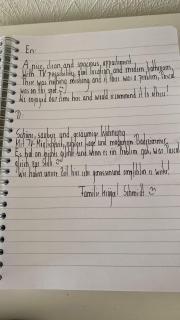 En:
A nice, clean, and spacious appartment
with TV possibility, good location, and modern bathroom,
There was nothing missing and if there was a problem, David
was on the spot :)
We enjoyed our time here and would recommend it to others!
D:
Schöne, saubere und geräumige Wohnung
Mit TV-Möglichkeit, guter Lage und modernem Badezimmer,
Es hat an nichts gefehlt und wenn es ein Problem gab, war David
gleich zur Stelle :)
Wir haben unsere Zeit hier sehr genossen und empfehlen es weiter!
Familie Schmidt :)